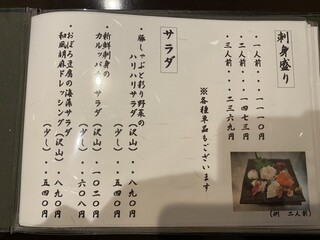 刺身盛り
・一人前・・一一一〇円
・二人前・・
・三人前・・二三六九円
※各種単品もございます
(例 二人前)
サラダ
・豚しゃぶと彩り野菜の
ハリハリサラダ(沢山)・・八九〇円
(少し)・・五四〇円
・新鮮刺身の
カルパッチョサラダ(沢山)・・一〇二〇円
(少し)・・六〇八円
・おぼろ豆腐の海藻サラダ
和風胡麻ドレッシング(沢山)・八九〇円
(少し)・・五四〇円